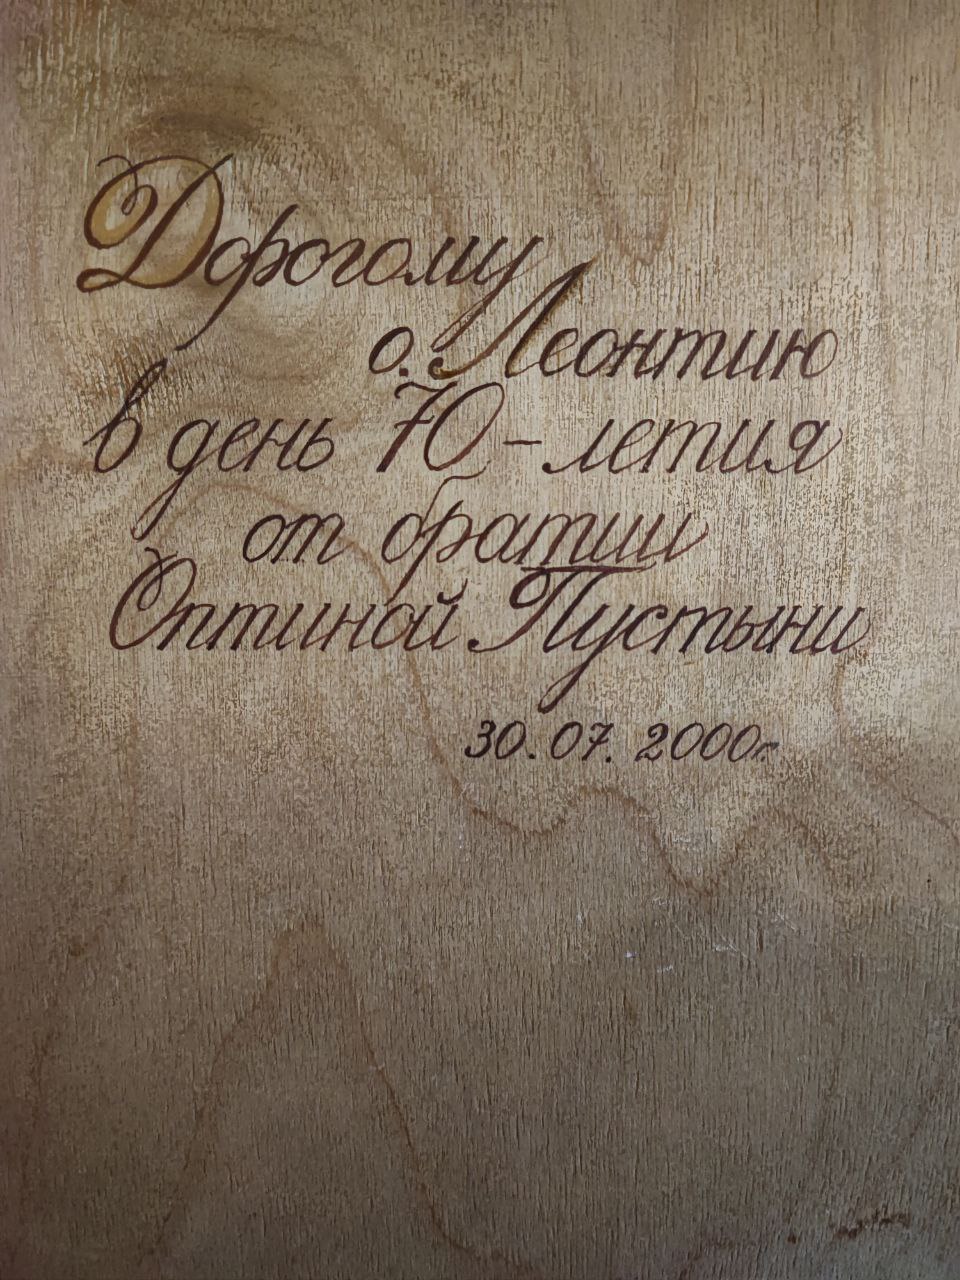 Дорогому
о. Леонтию
в день 70-летия
от братии
Оптиной Пустыни
30.07.2000г.